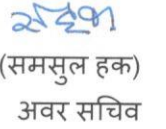 (समसुल हक)
अवर सचिव